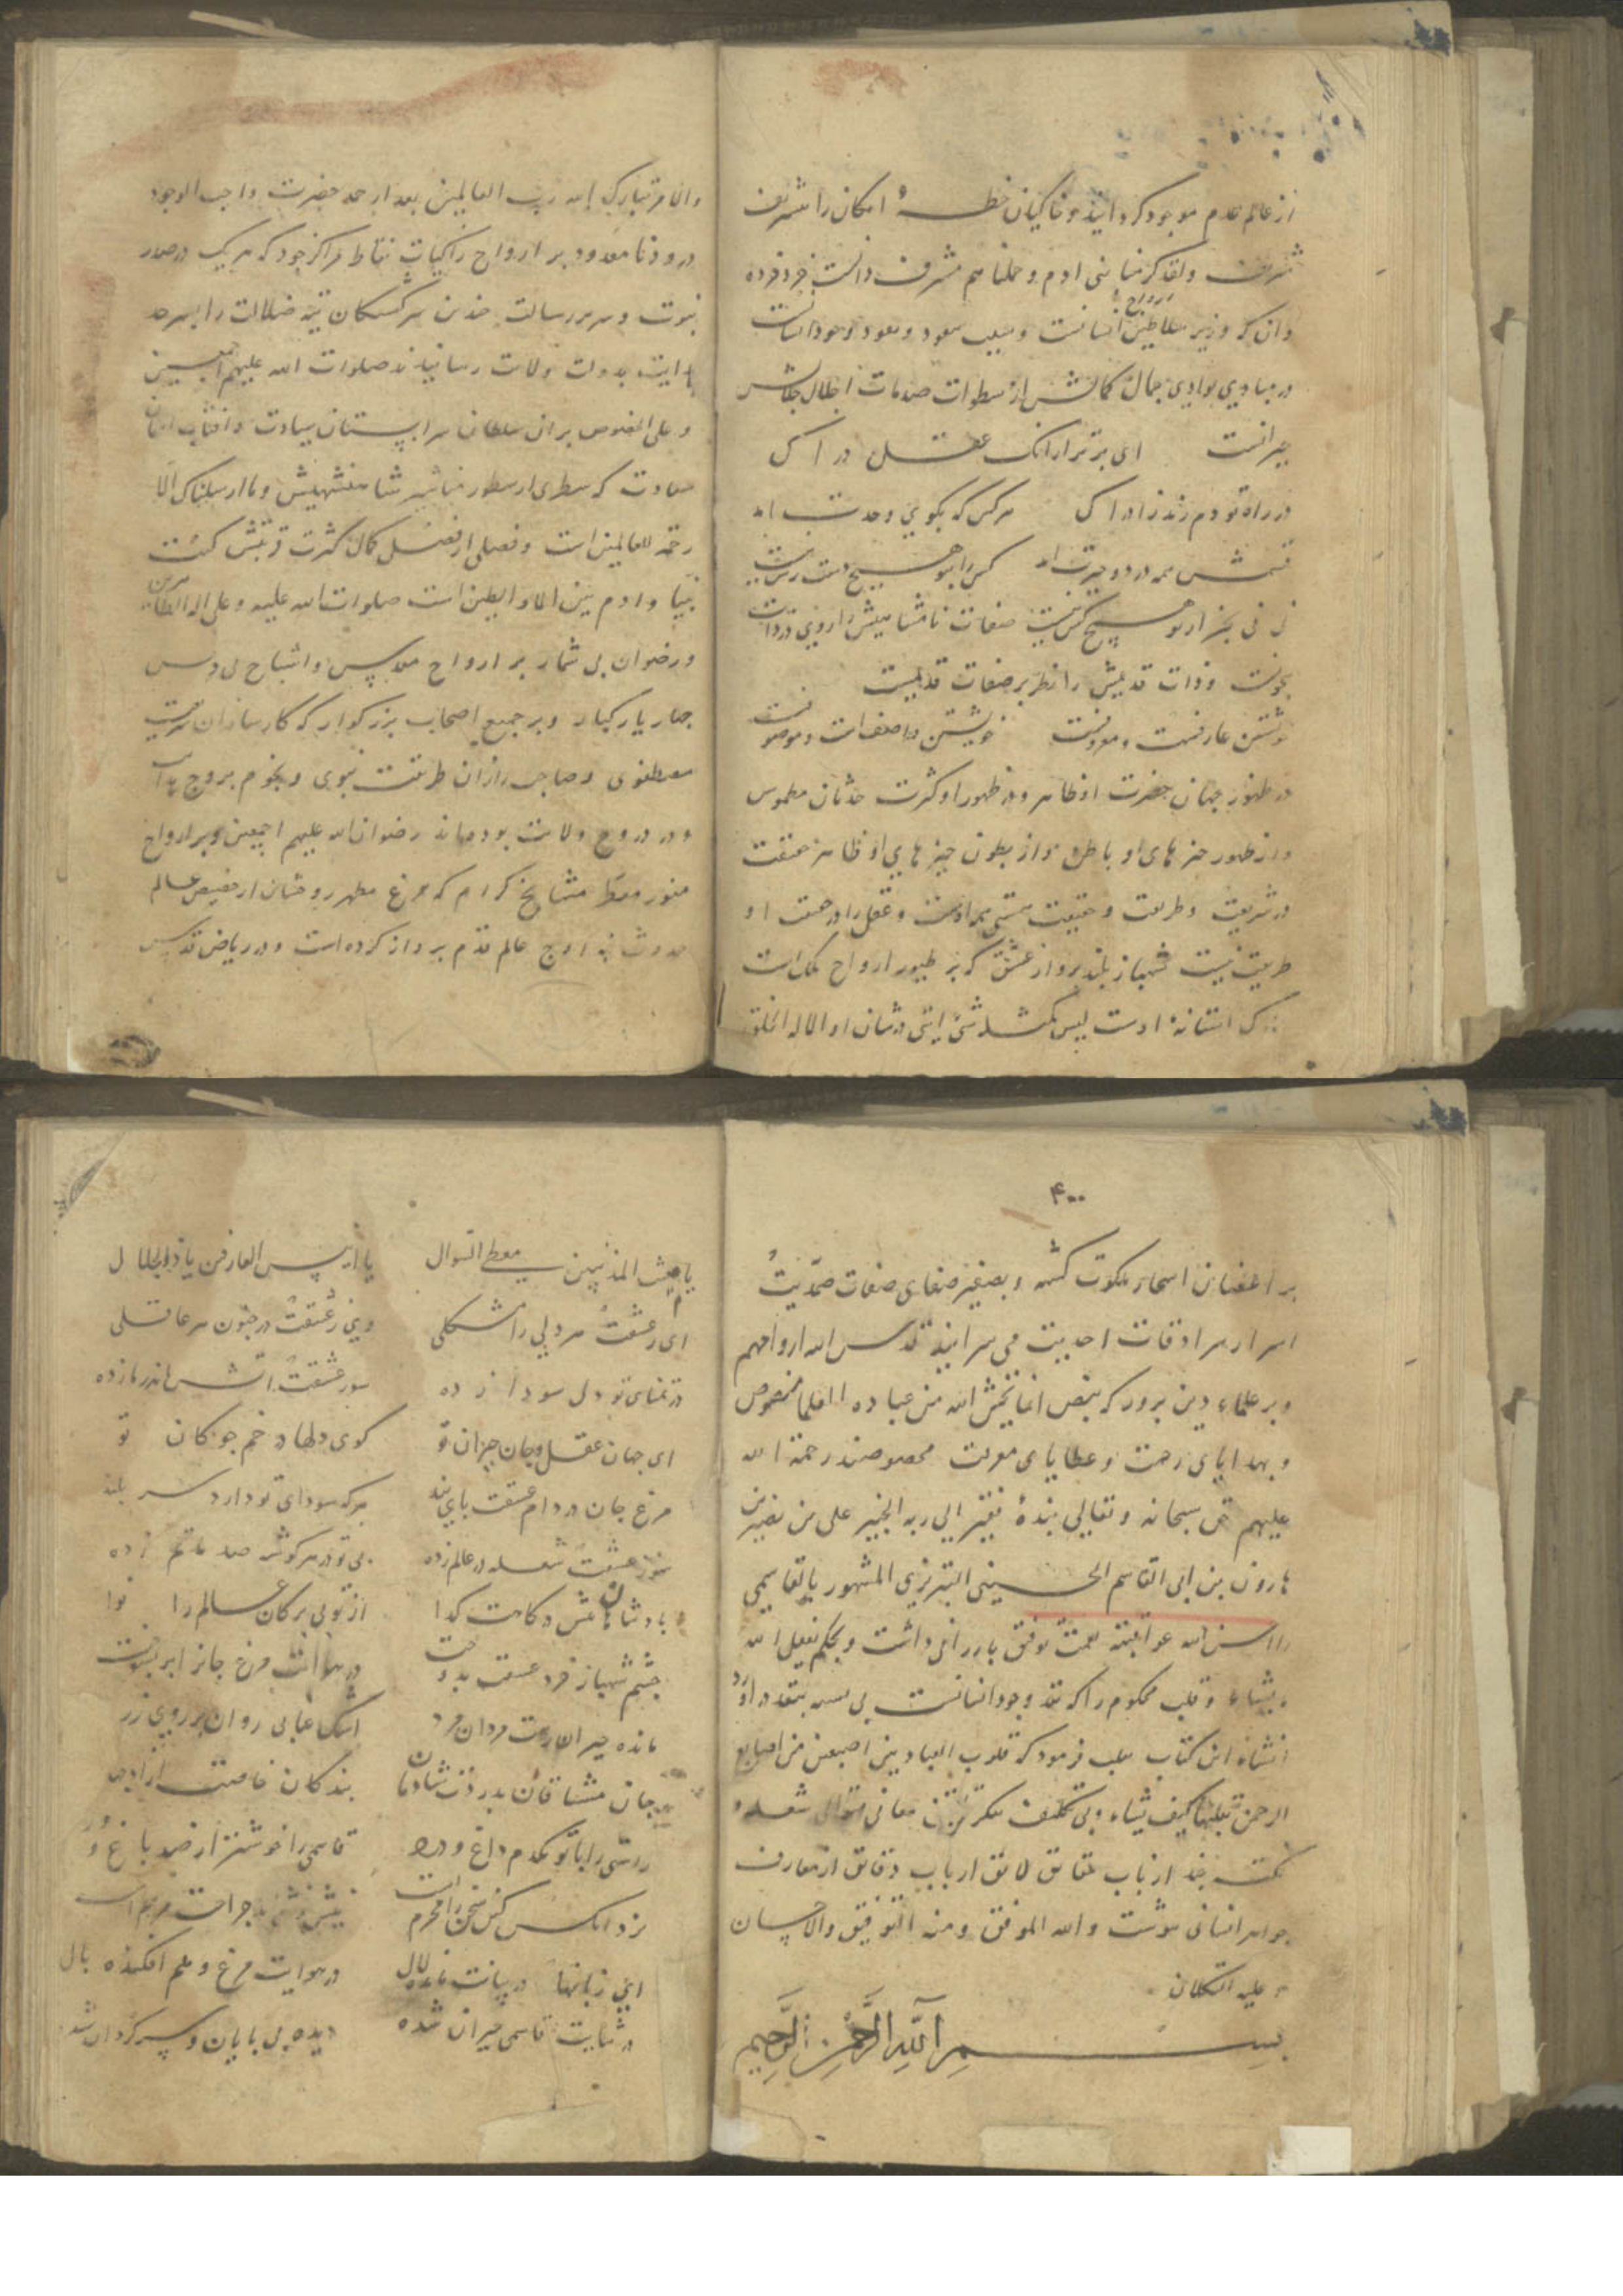 از عالم عدم موجود کردانید و خاکیان خطهٔ امکان را شریف
شریف ولقد کرمنا بنی ادم وحملناهم مشرف
وان که وزیر سلاطین ارواح انسانست وسبب
در مبادی بوادی جمال کمالش از سطوات صدمات
حیرانست ای برتر ازانک عقل در اک
در راه تو دم زند ز ادراک هر کس که بکوی وحدت امد
همه درد وحیرت امد کس را بتو هیچ دست رس نیست
بجز از تو هیچ کس نیست صفات نامتناهیش را روی در ذات
وذات قدیمش را نظر بر صفات قدیمیست
عارفست ومعروفست خویشتن واصفست وموصوفست
در ظهور جهان حضرت او ظاهر ودر ظهور او کثرت حدثان مطموس
واز ظهور چیزهای او باطن واز بطون چیزهای او ظاهر حقیقت
در شریعت وطریقت وحقیقت هستی همه اوست وعقل را در حقیقت او
طریقت نیست شهباز بلند پرواز عشق که بر طیور ارواح ملک است
استانهٔ اوست لیس کمثله شئ ایتی در شان او الا له الخلق
والامر تبارک الله رب العالمین بعد از حمد حضرت واجب الوجود
درود نامعدود بر ارواح زاکیات نقاط مراکز جود که هر یک در صدر
نبوت وسریر رسالت چندین سرکشتکان تیه ضلالت را بسرحد
هدایت بدولت ولایت رسانیدند صلوات الله علیهم اجمعین
وعلی الخصوص بران سلطان سراپستان سیادت وافتاب
سعادت که سطری از سطور مناشیر شاهنشهیش وما ارسلناک الا
رحمة للعالمین است وفصلی از فضل کمال قربتش کنت
نبیا وادم بین الماء والطین است صلوات الله علیه وعلی اله الطاهرین
ورضوان بی شمار بر ارواح مقدس واشباح
چهار یار کبار وبر جمیع اصحاب بزرکوار که کارسازان شریعت
مصطفوی وصاحب رازان طریقت نبوی ونجوم بروج هدایت
ودر دروج ولایت بوده‌اند رضوان الله علیهم اجمعین وبر ارواح
منور معطر مشایخ کرام که مرغ مطهر روحشان از حضیض عالم
حدوث به اوج عالم قدم پرواز کرده است ودر ریاض قدس
۴۰۰
بر اغصان اشجار ملکوت کشته وبصفیر صفای صفات صمدیت
اسرار سرادقات احدیت می سرایند قدس الله ارواحهم
وبر علماء دین پرور که بنص انما یخشی الله من عباده العلما مخصوص
وبهدایای رحمت وعطایای معرفت محصوصند رحمة الله
علیهم حق سبحانه وتعالی بندهٔ فقیر الی ربه الخبیر علی بن نصیر بن
هارون بن ابی القاسم الحسینی التبریزی المشهور بالقاسمی
را احسن الله عواقبته توفیق ارزانی داشت وبحکم یفعل الله
ما یشاء وقلب محکوم را که نقد وجود انسانست
انشاء این کتاب طلب فرمود که قلوب العباد بین اصبعین من اصابع
الرحمن یقلبها کیف یشاء وبی تکلف تفکر معانی متوالی شعله و
نکته چند از باب حقایق لایق ارباب دقایق از معارف
جواهر انسانی نوشت والله الموفق ومنه التوفیق والاحسان
وعلیه التکلان
بسم الله الرحمن الرحیم
یا غیاث المذنبین معطی السوال یا انیس العارفین یا ذوالجلال
ای ز عشقت هر دلی را مشکلی وی ز عشقت در جنون هر عاقلی
در تمنای تو دل سودا زده سوز عشقت اتش اندر ما زده
ای جهان عقل وجان حیران تو کوی دلها در خم چوکان تو
مرغ جان در دام عشقت پای بند هر که سودای تو دارد سر بلند
سوز عشقت شعله در عالم زده بی تو در هر کوشه صد ماتم زده
پادشاهان کدا از تو بی برکان عالم را نوا
چشم شهباز خرد عشقت بدوخت در هوایت مرغ جانرا پر بسوخت
مانده حیران رهت مردان مرد اشک عابی روان بر روی زرد
جان مشتاقان بدردت شادمان بندکان خاصت ازاد
راستی را با تو یکدم داغ ودرد قاسمی را خوشتر از صد باغ و ورد
نزد انکس کین سخن را محرم است جراحت مرهم است
این زبانها در بیانت مانده لال در هوایت مرغ وهم افکنده بال
در ثنایت قاسمی حیران شده دیده بی پایان وسرکردان شده